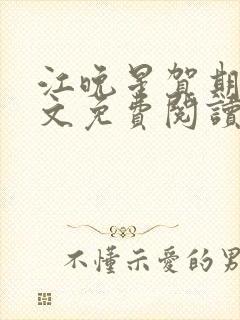 江晚星賀期
文免費閱讀
不懂示愛的男